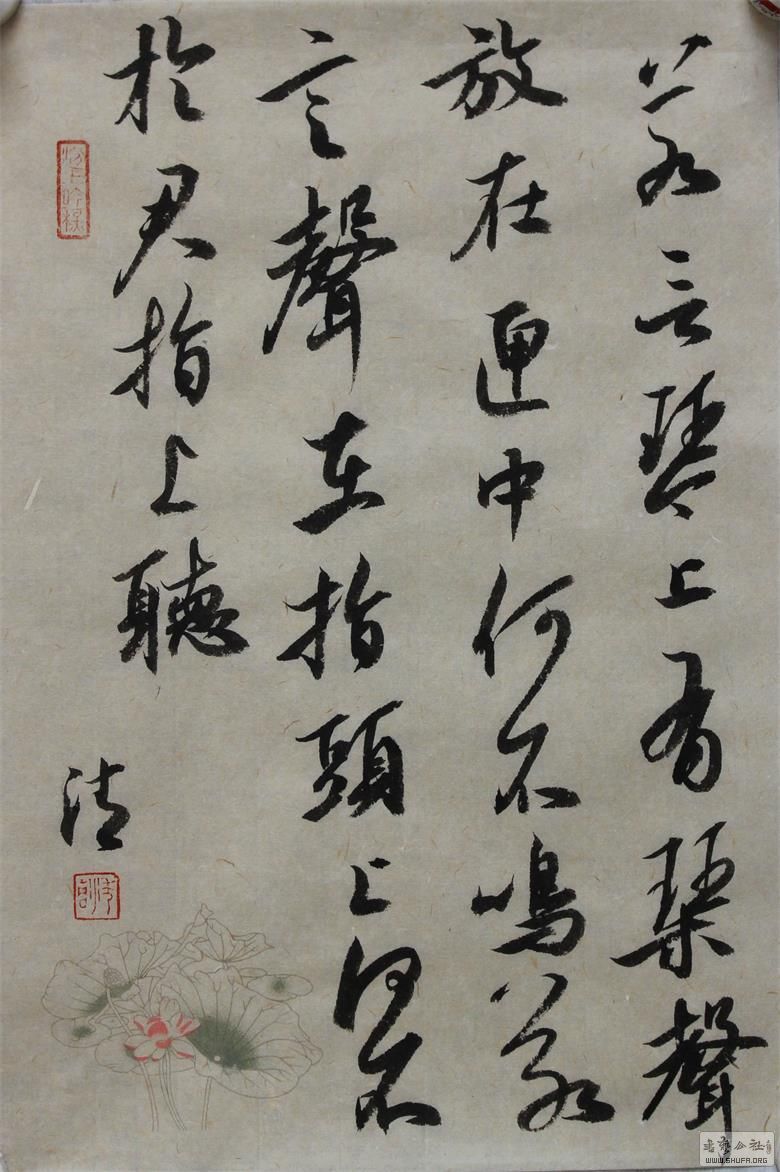 若言琴上有琴聲
放在匣中何不鳴若
言聲在指頭上何不
於君指上聽
清
书法公社
WWW.SHUFA.ORG